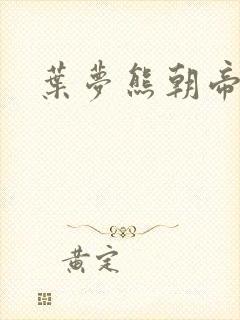 葉夢熊朝帝
黃定